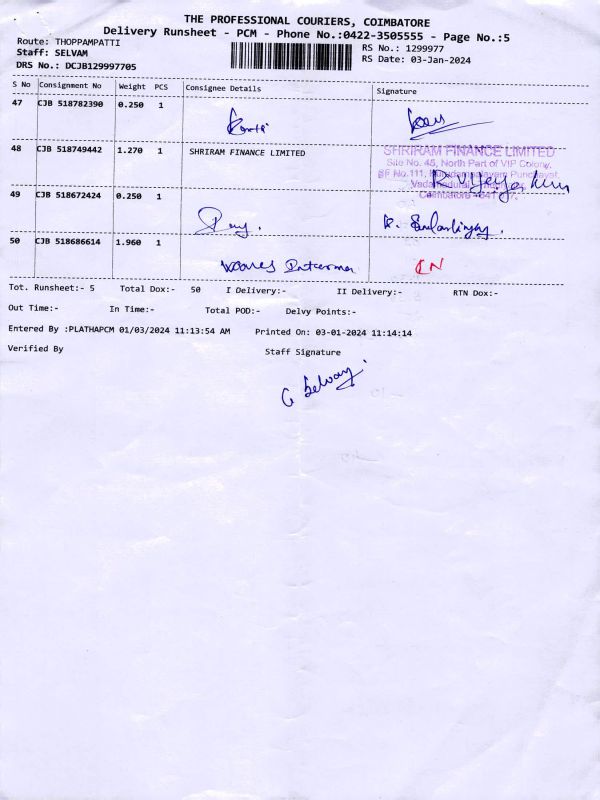 THE PROFESSIONAL COURIERS, COIMBATORE
Delivery Runsheet - PCM - Phone No.:0422-3505555 - Page No.:5
Route: THOPPAMPATTI
Staff: SELVAM
DRS No.: DCJB129997705
RS No.: 1299977
RS Date: 03-Jan-2024
S No Consignment No Weight PCS Consignee Details Signature
47 CJB 518782390 0.250 1
48 CJB 518749442 1.270 1 SHRIRAM FINANCE LIMITED
SHRIRAM FINANCE LIMITED
Site No. 45, North Part of VIP Colony,
SF No.111,
49 CJB 518672424 0.250 1
50 CJB 518686614 1.960 1
Tot. Runsheet:- 5 Total Dox:- 50 I Delivery:- II Delivery:- RTN Dox:-
Out Time:- In Time:- Total POD:- Delvy Points:-
Entered By :PLATHAPCM 01/03/2024 11:13:54 AM Printed On: 03-01-2024 11:14:14
Verified By Staff Signature